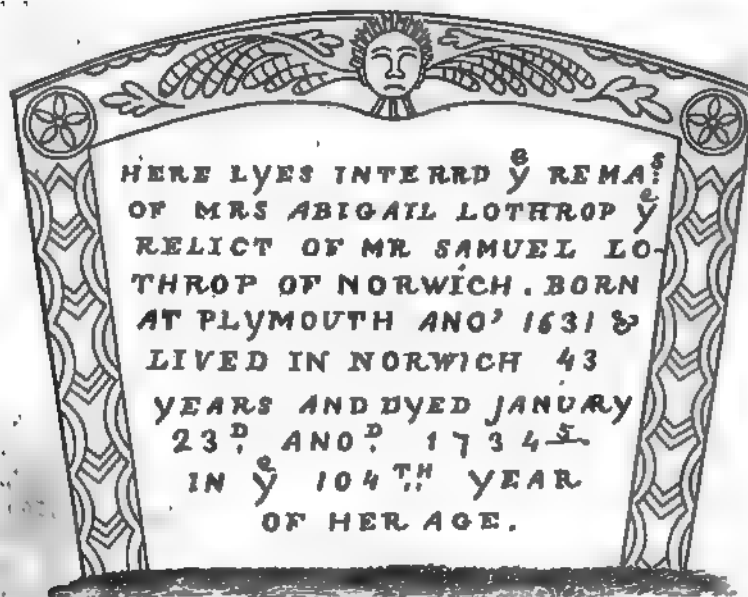 HERE LYES INTERRD yᵉ REMAˢ:
OF MRS ABIGAIL LOTHROP yᵉ
RELICT OF MR SAMUEL LO-
THROP OF NORWICH. BORN
AT PLYMOUTH ANO' 1631 &
LIVED IN NORWICH 43
YEARS AND DYED JANUARY
23ᴰ. ANOᴰ. 1734 5
IN yᵉ 104ᵀᴴ YEAR
OF HER AGE.